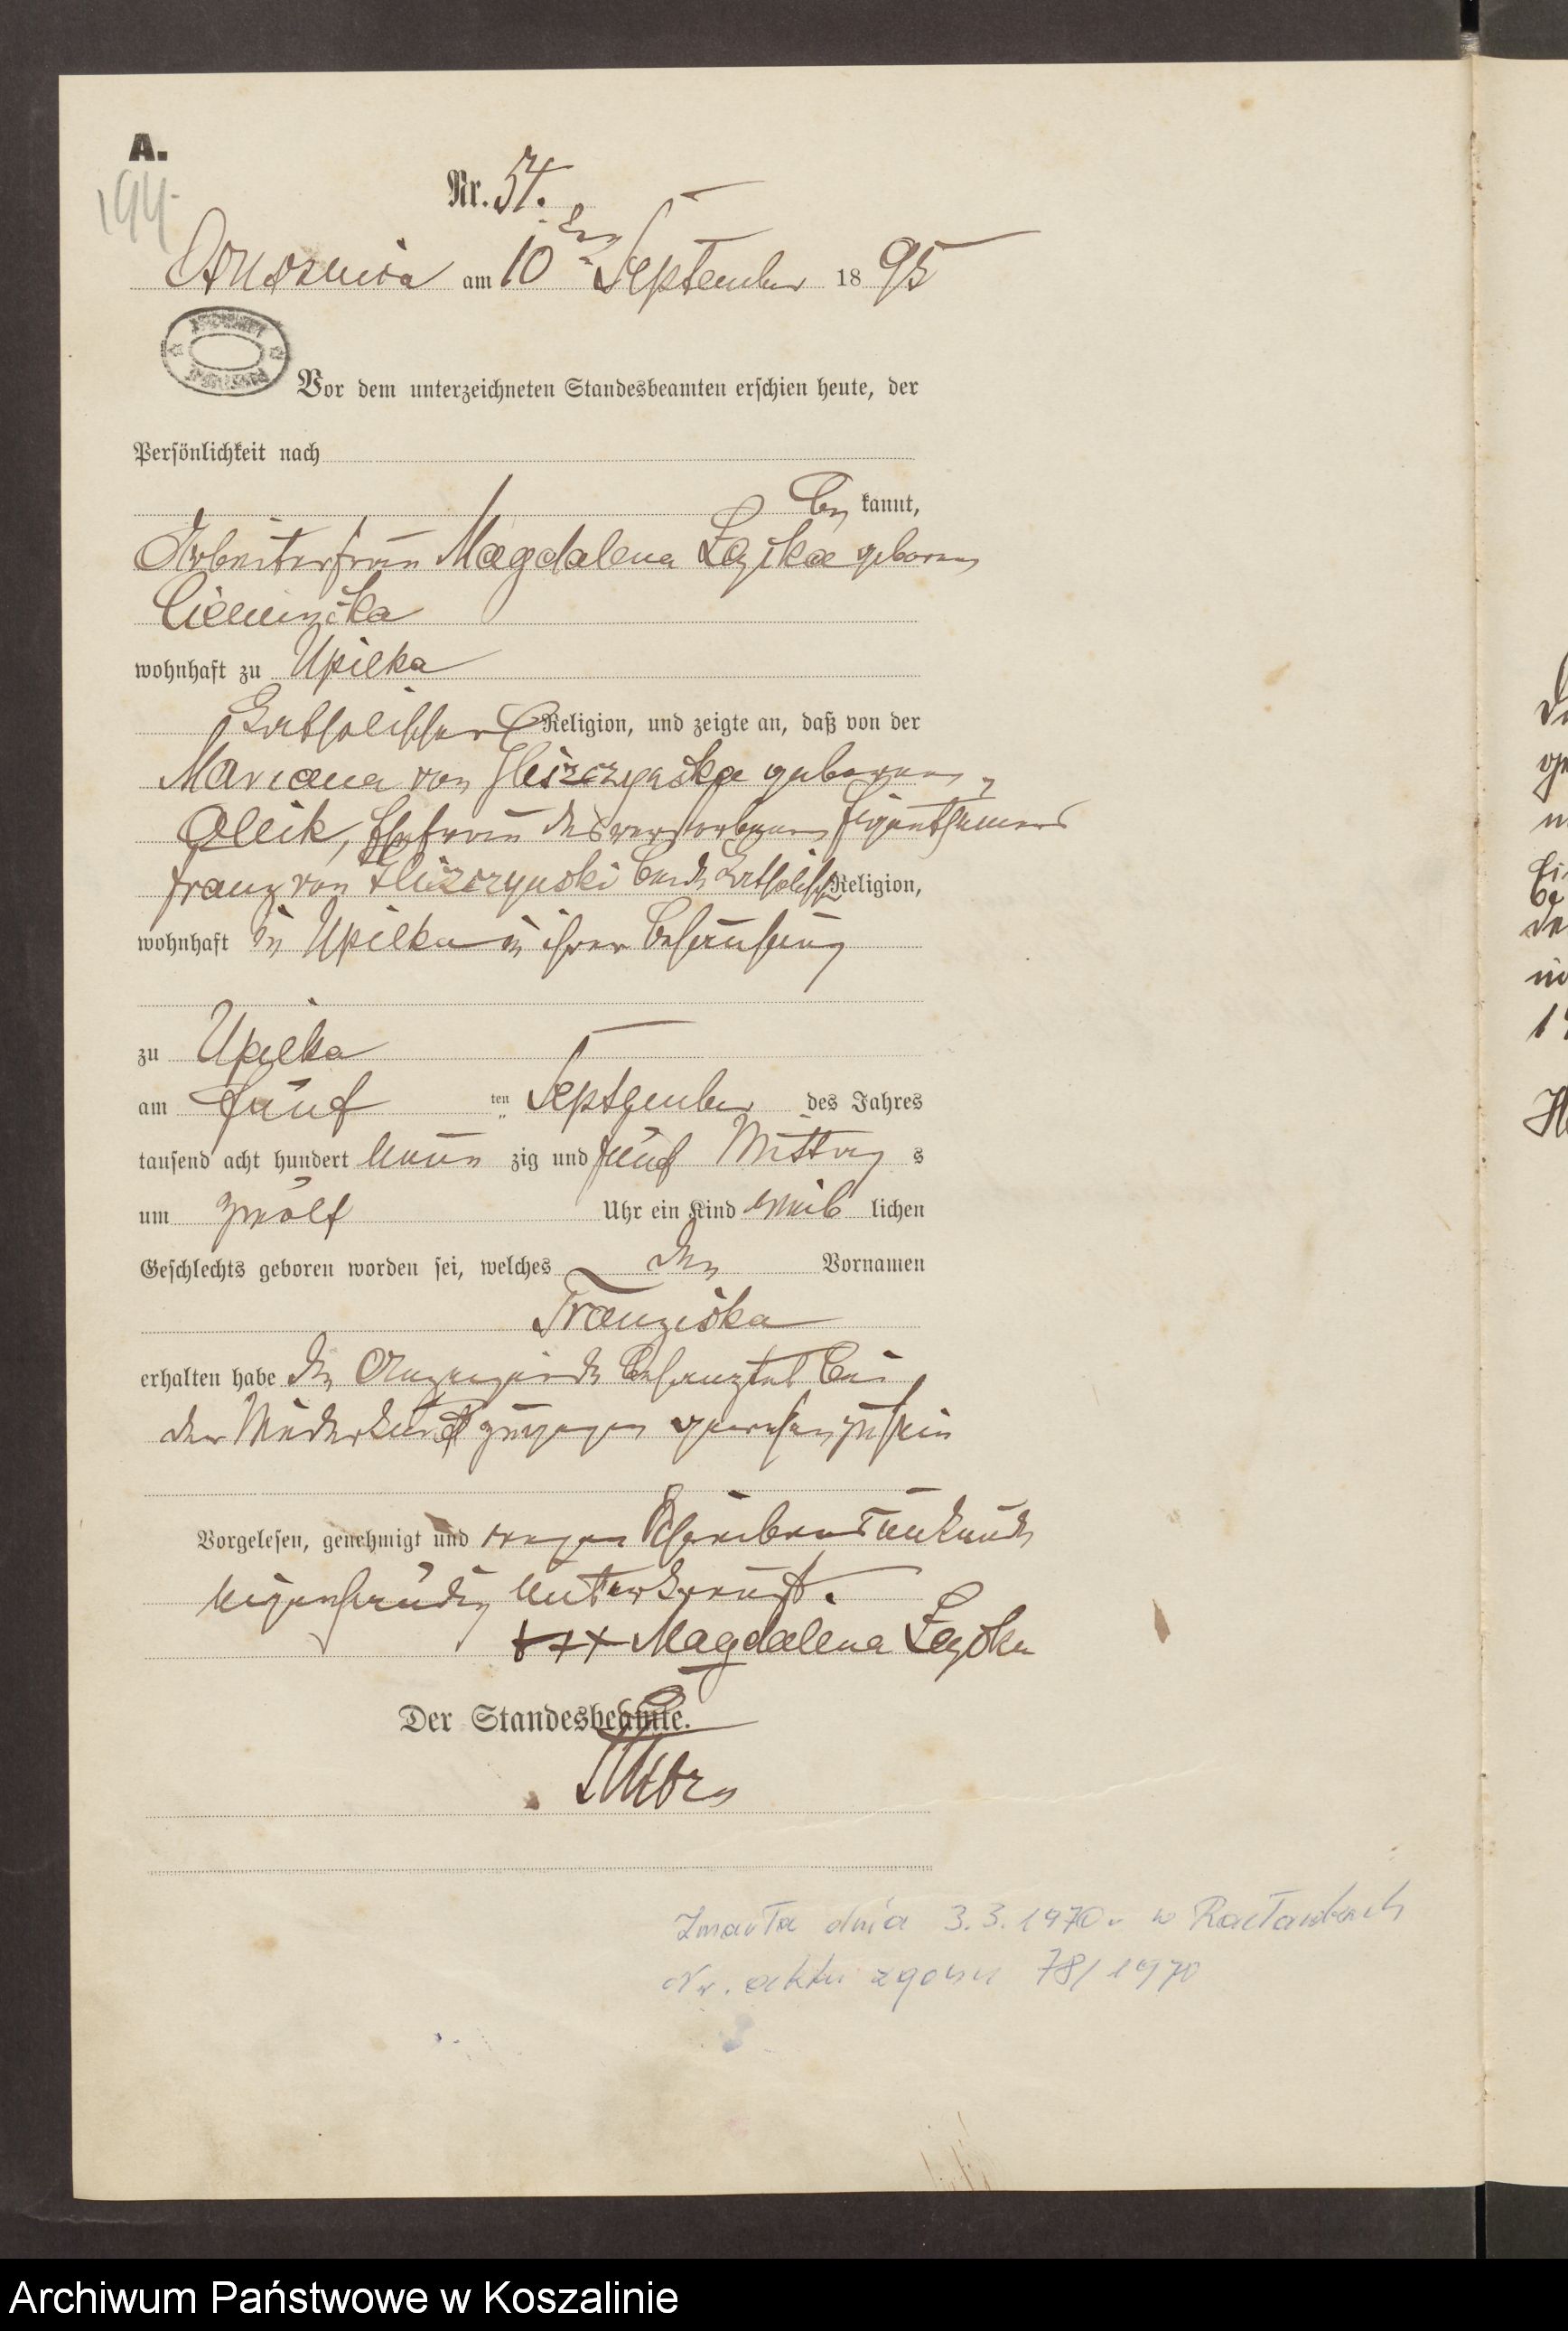 A.
194.
Nr. 54.
am 10ten September 1895
Vor dem unterzeichneten Standesbeamten erschien heute, der
Persönlichkeit nach
be kannt,
Arbeiterfrau Magdalena geborene
wohnhaft zu Upilka
katholischer Religion, und zeigte an, daß von der
Mariana von geborenen
Olik, Ehefrau des verstorbenen Eigenthümers
Franz von beide katholisch Religion,
wohnhaft in Upilka in ihrer Behausung
zu Upilka
am fünf ten September des Jahres
tausend acht hundert neun zig und fünf Mittag s
um zwölf Uhr ein Kind weib lichen
Geschlechts geboren worden sei, welches den Vornamen
Franziska
erhalten habe die Anzeigende behauptet bei
der Niederkunft zugegen gewesen zu sein
Vorgelesen, genehmigt und wegen Schreibensunkunde
unterkreuzt.
+++ Magdalena
Der Standesbeamte.
Zmarła dnia 3.3.1970 r w
Nr. aktu zgonu 78/1970
Archiwum Państwowe w Koszalinie